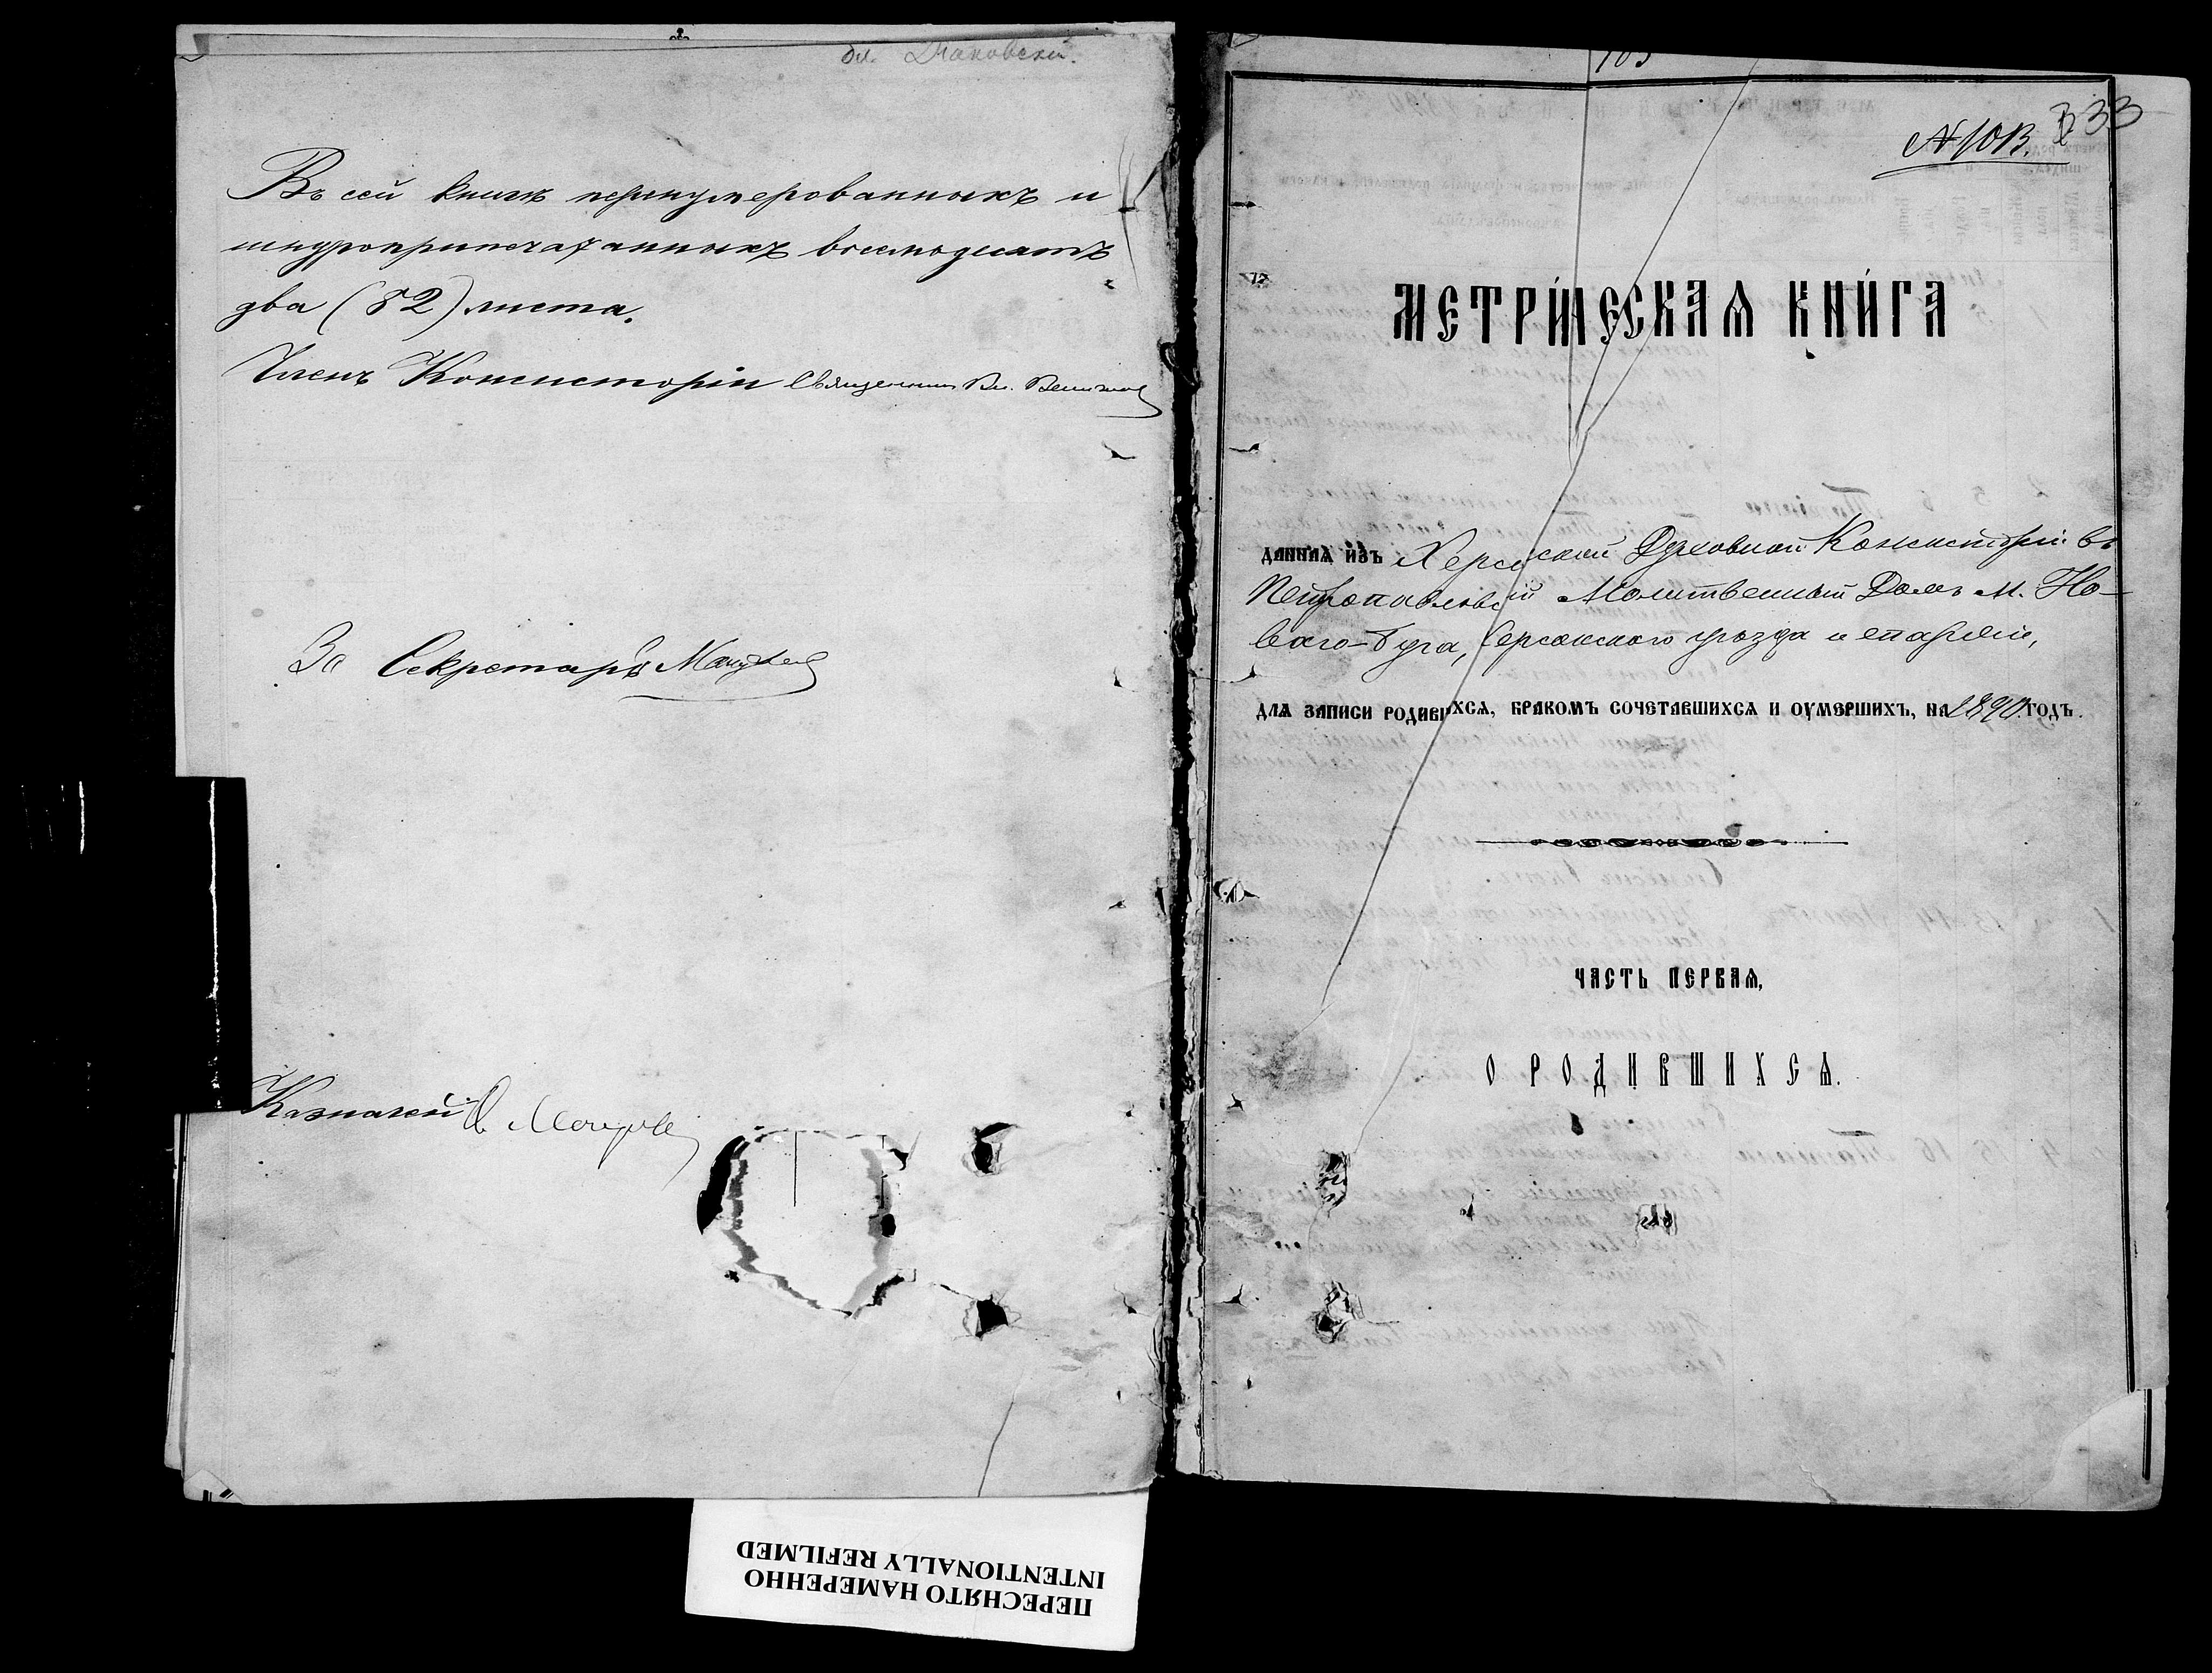 Въ сей книгѣ перенумерованныхъ и
шнуроприпечатанныхъ восемьдесятъ
два (82) листа.
Членъ Консисторіи Священникъ Вл.
За Секретаря
Казначей
333
МЕТРИ́ЧЕСКАѦ КНИ́ГА
ДАННАѦ ИЗЪ Херсонской Духовной Консисторіи въ
Петропавловскій Молитвенный Домъ м. Но-
ваго-Буга, Херсонского уѣзда и епархіи,
ДЛѦ ЗАПИСИ РОДИВШИХСѦ, БРАКОМЪ СОЧЕТАВШИХСѦ И ОУМЕРШИХЪ, НА 1890 ГОДЪ.
ЧАСТЬ ПЕРВАѦ,
О РОДИВШИХСѦ.
ПЕРЕСНЯТО НАМЕРЕННО
INTENTIONALLY REFILMED